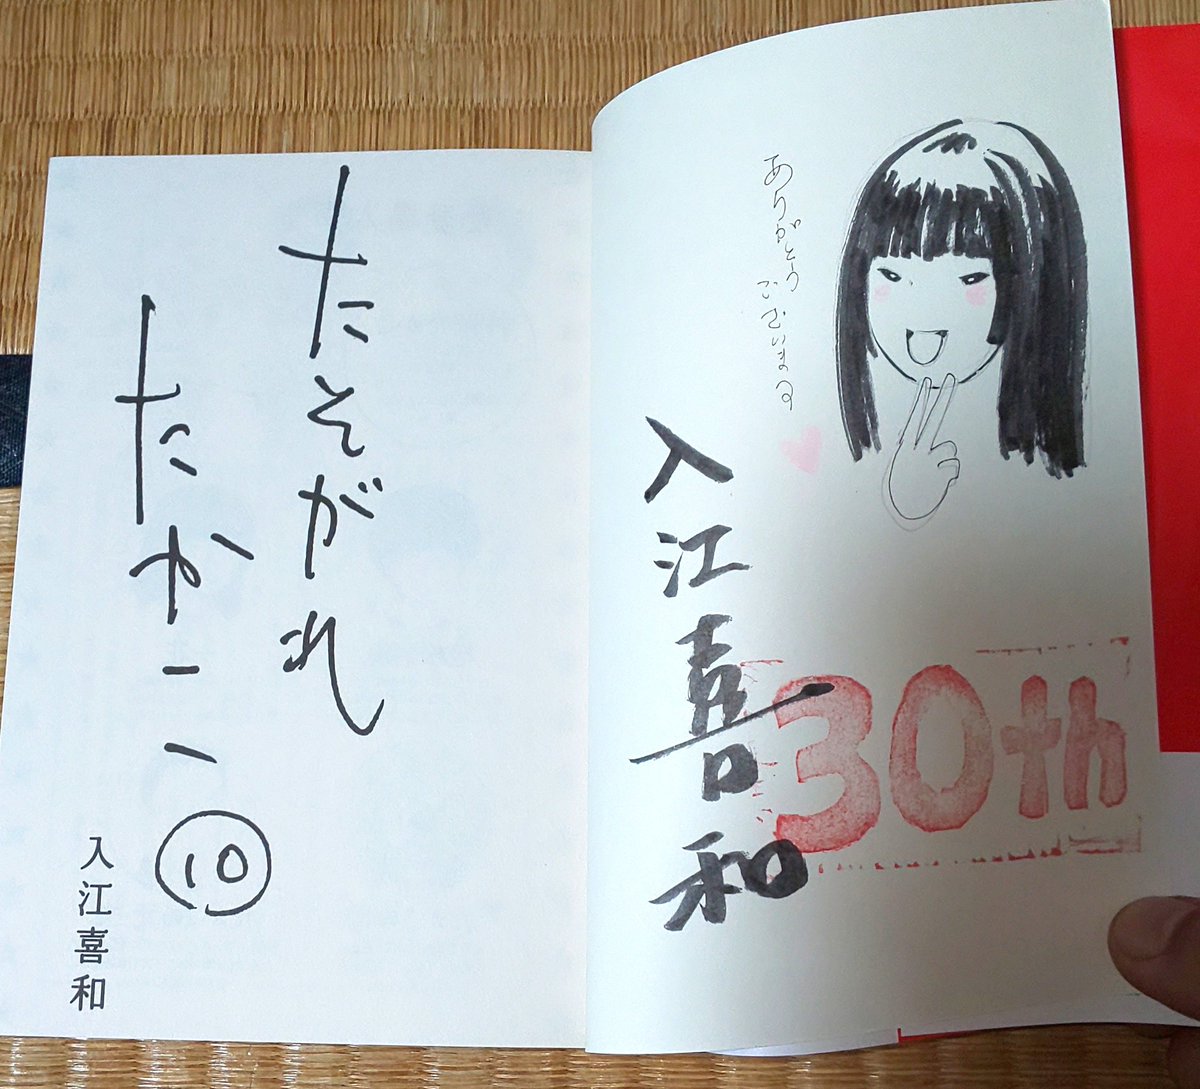 ありがとう
ございます
入江喜和
30th
たそがれ
たかこ
⑩
入江喜和